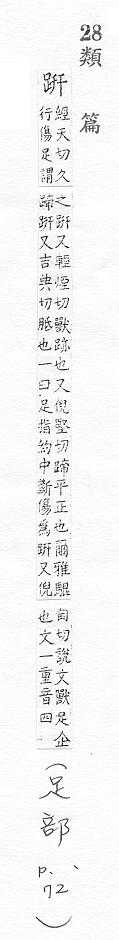 28
類篇
趼
經天切久
行傷足謂
之趼又輕煙切獸跡也又倪堅切蹄平正也爾雅騉
蹄趼又吉典切胝也一曰足指約中斷傷為趼又倪
甸切說文獸足企
也文一重音四
(足部、p.72)